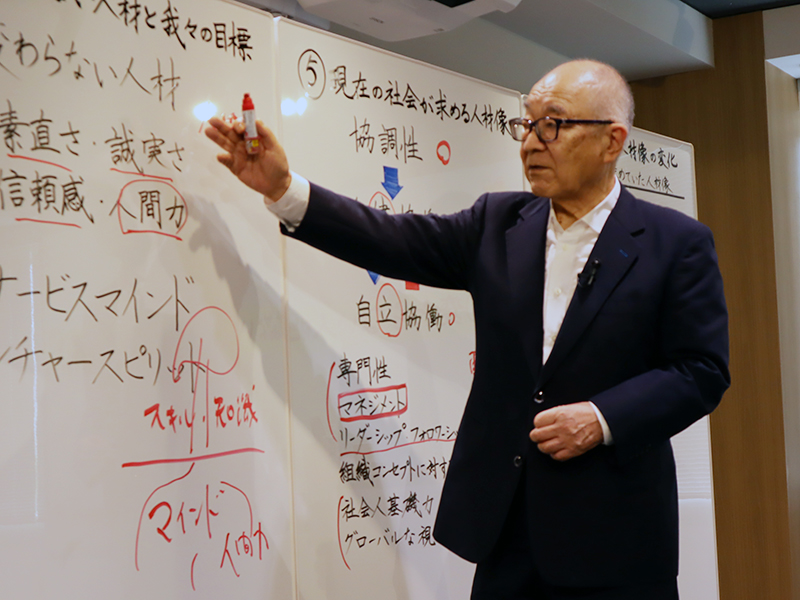 人材と我々の目標
変わらない人材
素直さ・誠実さ
信頼感・人間力
サービスマインド
ンチャースピリット
スキル・知識
マインド
人間力
⑤ 現在の社会が求める人材像
協調性
自立協働
専門性
マネジメント
リーダーシップ・フォロワーシッ
組織コンセプトに対す
社会人基礎力
グローバルな視
人材像の変化
めていた人材像